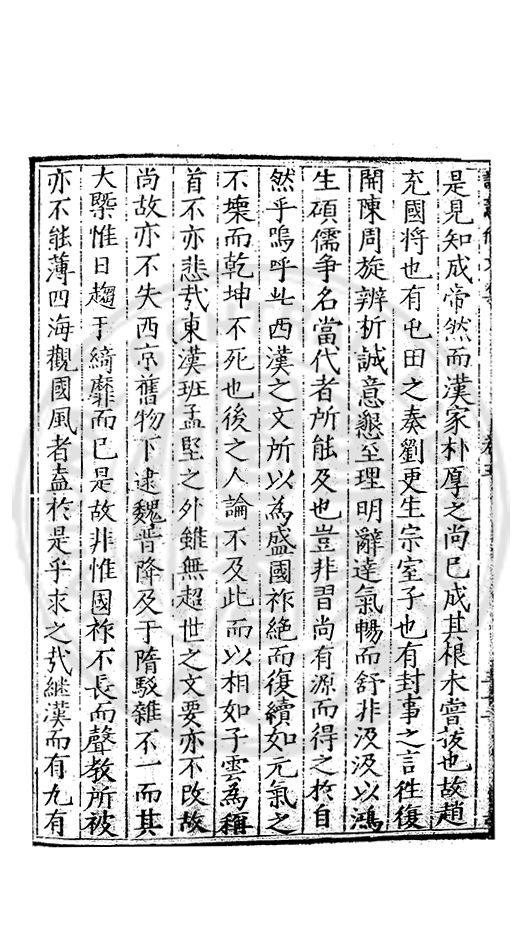 是見知成常然而漢家朴厚之尚已成其根未嘗拔也故趙
充國将也有屯田之奏劉更生宗室子也有封事之言徃復
開陳周旋辨析誠意懇至理明辭達氣暢而舒非汲汲以鴻
生碩儒争名當代者所能及也豈非習尚有源而得之於自
然乎嗚呼此西漢之文所以為盛國祚絶而復續如元氣之
不壊而乾坤不死也後之人論不及此而以相如子雲為稱
首不亦悲㢤東漢班孟堅之外雖無超世之文要亦不改故
尚故亦不失西京舊物下逮魏晋降及于隋駁雜不一而其
大槩惟日趨于綺靡而已是故非惟國祚不長而聲教所被
亦不能薄四海觀國風者盍於是乎求之㢤継漢而有九有